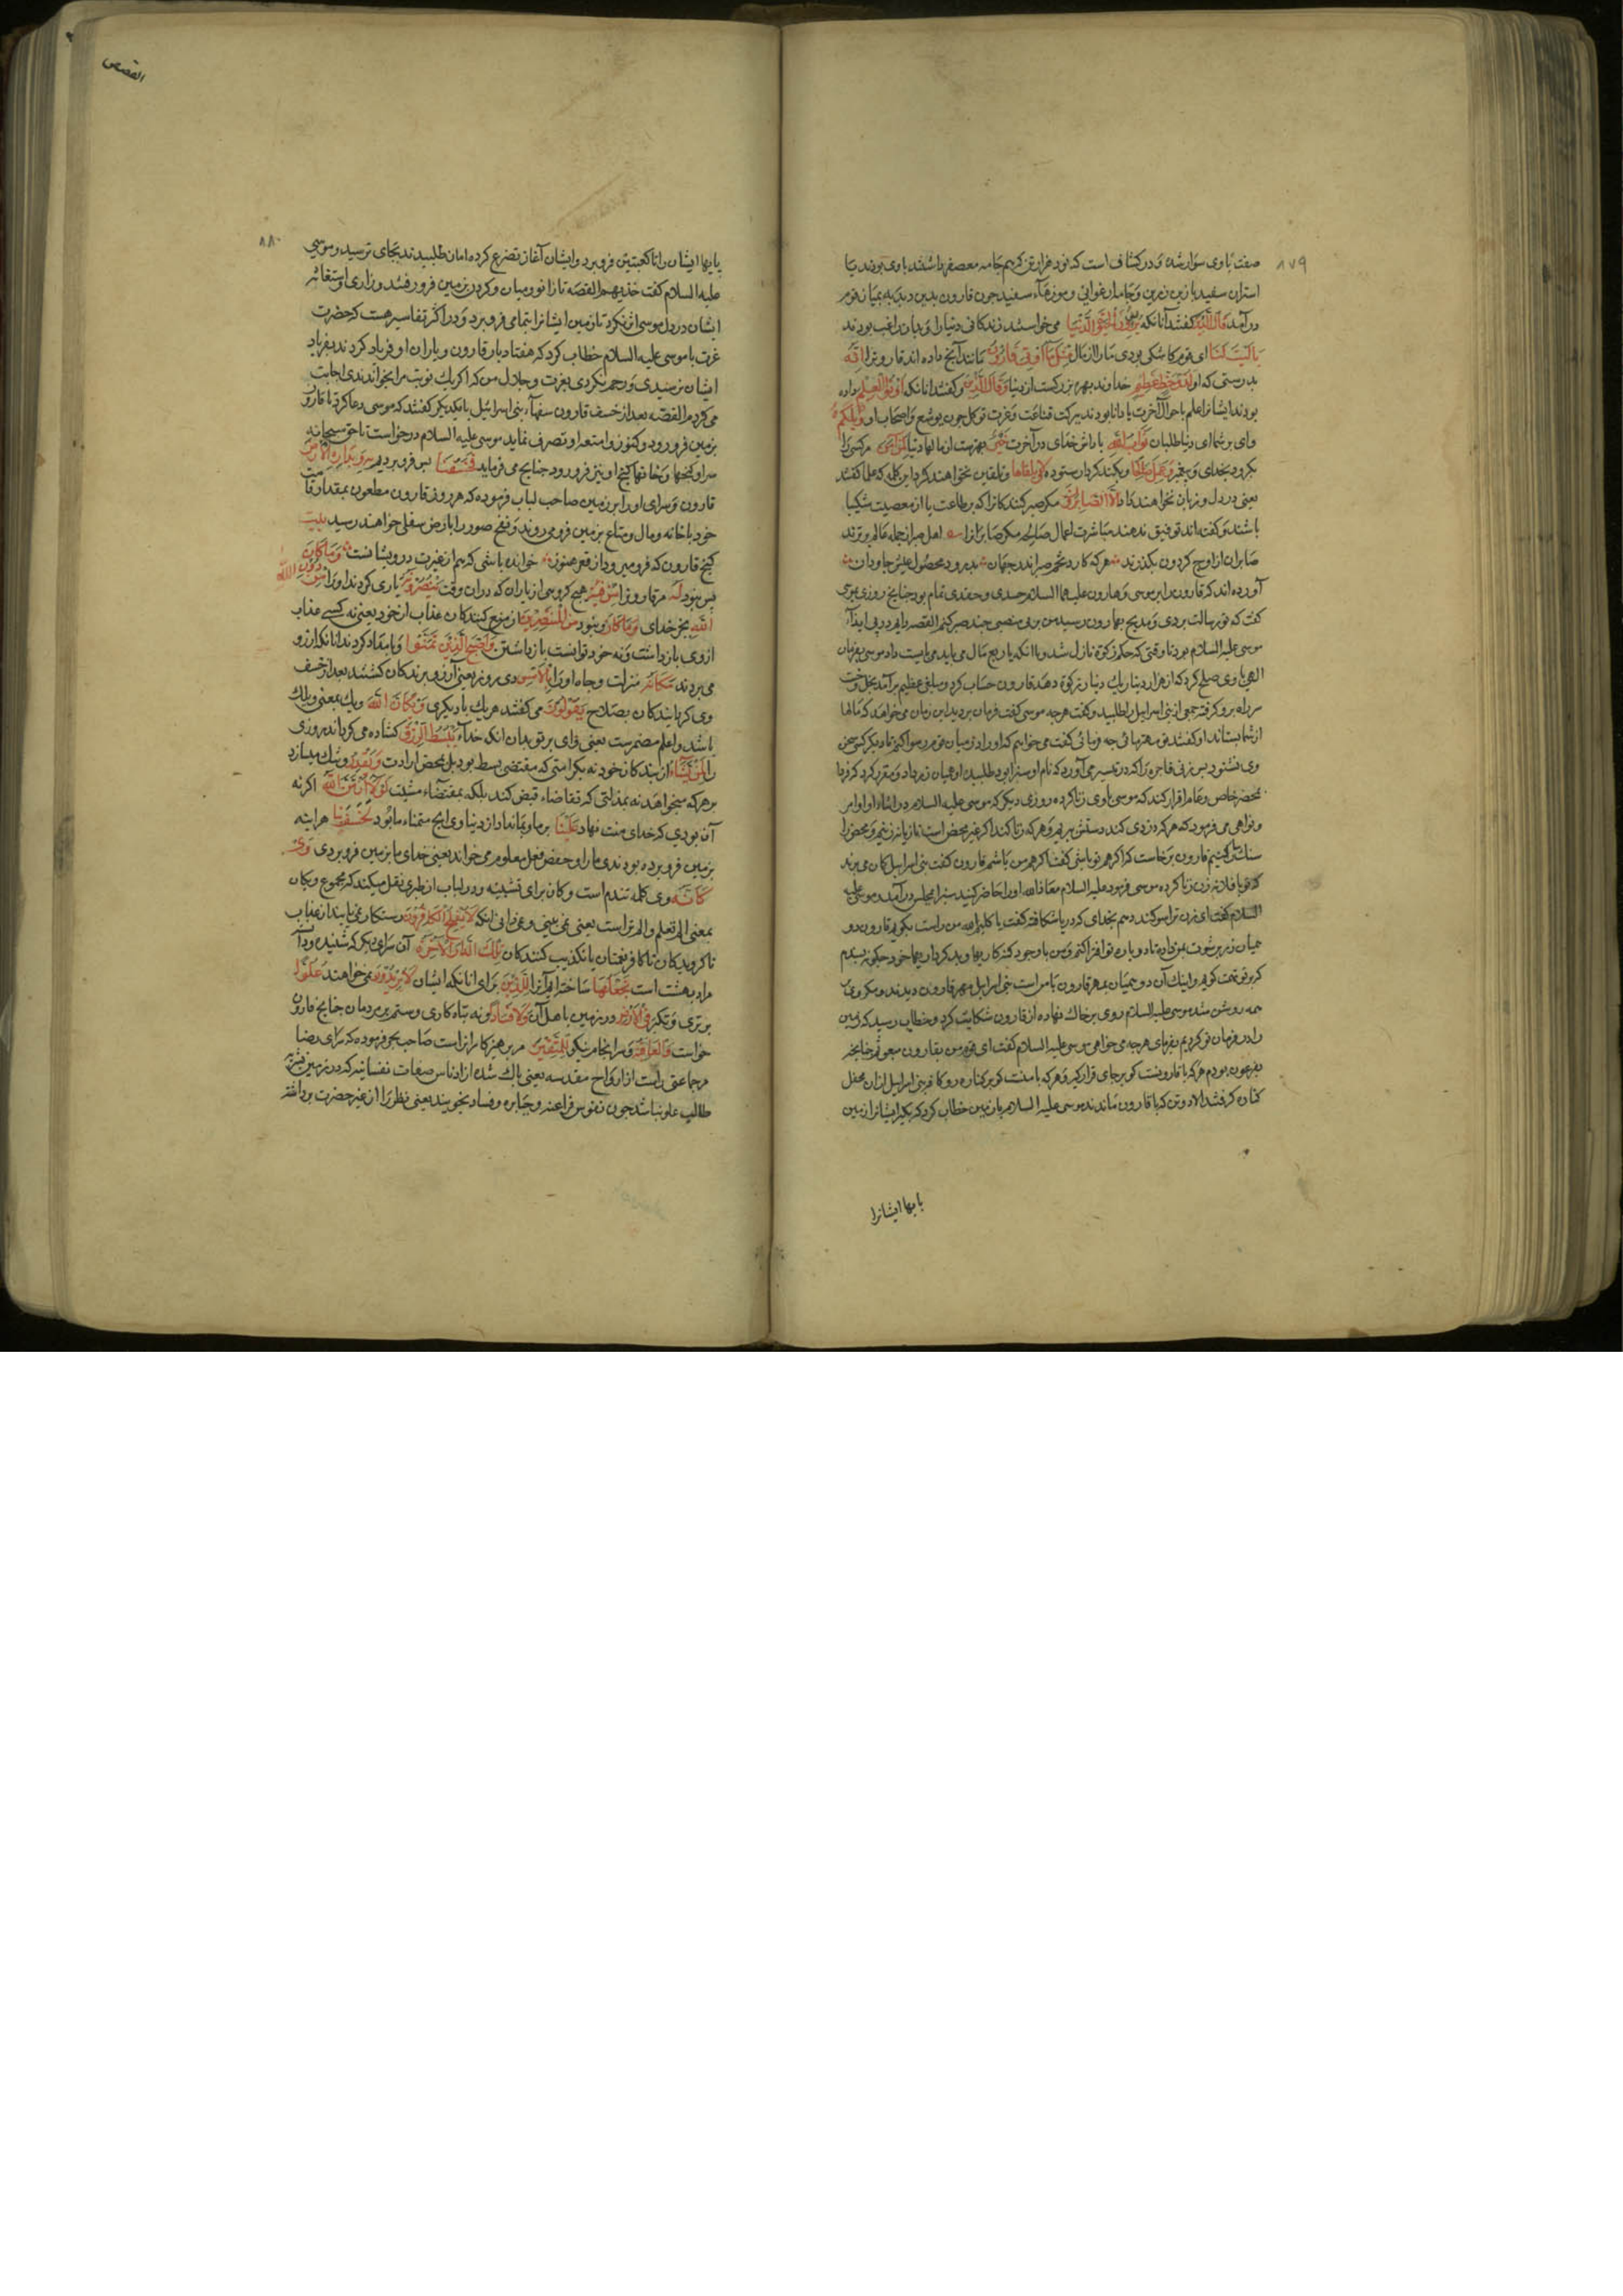 ۸۷۹
صفت با وی سوار شده و در کشاف است که نود هزار تن کریم جامه معصفر داشتند با وی بودند با
استران سفید با زین زرین و جامهاء ارغوانی و موزهاء سفید چون قارون بدین دبدبه بمیان قوم
در آمد قال الذین گفتند آنانکه یریدون الحیوة الدنیا می خواستند زندکانی دنیا را و بدان راغب بودند
یا لیت لنا ای قوم کاشکی بودی ما را از مال مثل ما اوتی قارون مانند آنچ داده اند قارونرا انه
بدرستی که او لذو حظ عظیم خداوند بهره بزرکست از دنیا وقال الذین و گفتند انانکه اوتوا العلم داده
بودند ایشانرا علم باحوال آخرت یا دانا بودند ببرکت قناعت و عزت توکل چون یوشع و اصحاب او ویلکم
وای بر شما ای دنیا طلبان ثواب الله پاداش خدای در آخرت خیر بهترست از مالهاء دنیا لمن امن مر کسی را
بکرود بخدای و پیغمبر وعمل صالحا و بکند کردار ستوده ولا یلقاها و تلقین نخواهند کرد این کلمه که علما گفتند
یعنی در دل و زبان نخواهند داد الا الصابرون مکر صبر کنندکانرا که بر طاعت یا از معصیت شکیبا
باشند و گفته اند توفیق ندهند مباشرت اعمال صالحه مکر صابرانرا اهل صبر از جمله عالم برترند
صابران از اوج کردون بکذرند هر که کارد تخم صبر اندر جهان بدرود محصول عیش جاودان
آورده اند که قارون بر موسی و هارون علیهما السلام حسدی و حقدی تمام بود چنانچ روزی موسی
گفت که تو رسالت بردی و مذبح بهارون رسید من بی منصبی چند صبر کنم القصه دایم در پی ایذاء
موسی علیه السلام بود تا وقتی که حکم زکوة نازل شد و با انکه با ربع مال می باید می بایست داد موسی بفرمان
الهی با وی صلح کرد که از هزار دینار یک دینار زکوة دهد قارون حساب کرد و مبلغی عظیم بر آمد بخل و خست
سر راه برو کرفته جمعی از بنی اسرائیل را طلبید و گفت هرچه موسی گفت فرمان بردید این زمان می خواهد که مالها
از شما بستاند او گفتند تو مهتر مائی چه فرمائی گفت می خواهم که او را در میان قوم رسوا کنم تا دیکر کس سخن
وی نشنود پس زنی فاجره را که در تفسیر می آورد که نام او سبرا بود طلبید و همیان زر بداد و مقرر کرد که فردا
بمحضر خاص و عام اقرار کند که موسی با وی زنا کرده روزی دیکر که موسی علیه السلام در اثناء اوامر
و نواهی می فرمود که هر که دزدی کند دستش ببریم و هر که زنا کند اکر غیر محصن است تازیانه زنیم و محصن را
سنکسار کنیم قارون برخاست که اکر هم تو باشی گفت اکر هم من باشم قارون گفت بنی اسرائیل کمان می برند
که تو با فلانه زن زنا کرده موسی فرمود علیه السلام معاذ الله او را حاضر کنید سبرا بمجلس در آمد و موسی علیه
السلام گفت ای زن ترا سوکند دهم بخدای که دریا شکافته گفت یا کلیم الله من راست بکویم قارون دو
همیان زر برشوت بمن داده تا
کرد و تو تهمت کویم و اینک آن دو همیان بمهر قارون با من است بنی اسرائیل مهر قارون دیدند و مکر وی بر
همه روشن شد موسی علیه السلام روی بر خاک نهاده از قارون شکایت کرد و خطاب رسید که زمین
را در فرمان تو کردیم بفرمای هرچه می خواهی موسی علیه السلام گفت ای قوم من بقارون مبعوثم چنانچه
بفرعون بودم هر که با قارونست کو بر جای قرار کیر و هر که با منست کو بر کناره رو کافه بنی اسرائیل از ان محفل
کنار کرفتند الا دو تن که با قارون ماندند موسی علیه السلام با زمین خطاب کرد که بکیر ایشانرا زمین
بایها ایشانرا
القصص
۸۸۰
پایها ایشان را تا کعبتین فرو برد و ایشان آغاز تضرع کرده امان طلبیدند بجای نرسید و موسی
علیه السلام گفت خذیهم القصه تا زانو و میان و کردن بزمین فرو رفتند و زاری و استغاثه
ایشان در دل موسی اثر نکرد تا زمین ایشانرا بتمامی فرو برد و در اکثر تفاسیر هست که حضرت
عزت با موسی علیه السلام خطاب کرد که هفتاد بار قارون و یاران او فریاد کردند بفریاد
ایشان نرسیدی و رحم نکردی بعزت و جلال من که اکر یک نوبت مرا بخواندندی اجابت
می کردم القصه بعد از خسف قارون سفهاء بنی اسرائیل با یکدیکر گفتند که موسی دعا کرد تا قارون
بزمین فرو رود و کنوز و امتعه او تصرف نماید موسی علیه السلام درخواست تا حق سبحانه
سرا و کنجها و خانهاء کنج او نیز فرو رود چنانچ می فرماید فخسفنا پس فرو بردیم به وبداره الارض
قارون و سرای او را بزمین صاحب لباب فرموده که هر روز قارون مطعون بمقدار قامت
خود با خانه و مال و متاع بزمین فرو می روند و نفخ صور را بارض سفلی خواهند رسید بیت
کنج قارون که فرو میرود از قعر هنوز خوانده باشی که هم از غیرت درویشانست وما کان
پس نبود له مر قارونرا من فئة هیچ کروهی از یاران که در ان وقت ینصرونه یاری کردند او را من دون الله
الله بجز خدای وما کان و نبود من المنتصرین از منع کنندکان عذاب از خود یعنی نه کسی عذاب
ازوی باز داشت و نه خود توانست باز داشتن واصبح الذین تمنوا و بامداد کردند انانکه آرزو
می بردند مکانه منزلت و جاه او را بالامس دی روز یعنی آرزو برندکان کشتند بعد از خسف
وی کراینده کان بصلاح یقولون می گفتند هر یک با دیکری ویکان الله ویک بمعنی ویلک
باشد و اعلم مضمرست یعنی وای بر تو بدان انکه خداء یبسط الرزق کشاده می کرداند روزی
را لمن یشاء از بندکان خود نه بکرامتی که مقتضی بسط بود بل بمحض ارادت ویقدر و تنک میسازد
بر هرکه میخواهد نه بمذلتی که تقاضاء قبض کند بلکه بمقتضاء مشیت لولا ان من الله اکر نه
آن بودی که خدای منت نهاد علینا بر ما و بما نداد از دنیاوی انچ متمناء ما بود لخسف بنا هر اینه
بزمین فرو برده بودندی ما را و حفص فعل معلوم می خواند یعنی خدای ما بزمین فرو بردی وی
کانه وی کلمه تندم است و کان برای تشبیه و در لباب از طبری نقل میکند که مجموع ویکان
بمعنی الم تعلم و الم تر است یعنی نمی بینی و نمی دانی انکه لا یفلح الکافرون رستکار نمی یابند از عذاب
ناکرویدکان تا کافر نعمتان یا تکذیب کنندکان تلک الدار الاخرة آن سرای دیکر که شنیده و دانسته
مراد بهشت است نجعلها ساخته ایم آنرا للذین برای انانکه ایشان لا یریدون نمی خواهند علوا
برتری و تکبر فی الارض در زمین با اهل آن ولا فسادا و نه تباه کاری و ستم بر مردمان چنانچ قارون
خواست والعاقبة و سرانجام نیکو للمتقین مر پرهیزکارانرا است صاحب بحر فرموده که سرای رضا
مر جماعتی راست از ارواح مقدسه یعنی پاک شده از ادناس صفات نفسانیه که در زمین بشریه
طالب علو نباشند چون نفوس فراعنه و جبابره و فساد نجویند یعنی نظر را از غیر حضرت برداشته